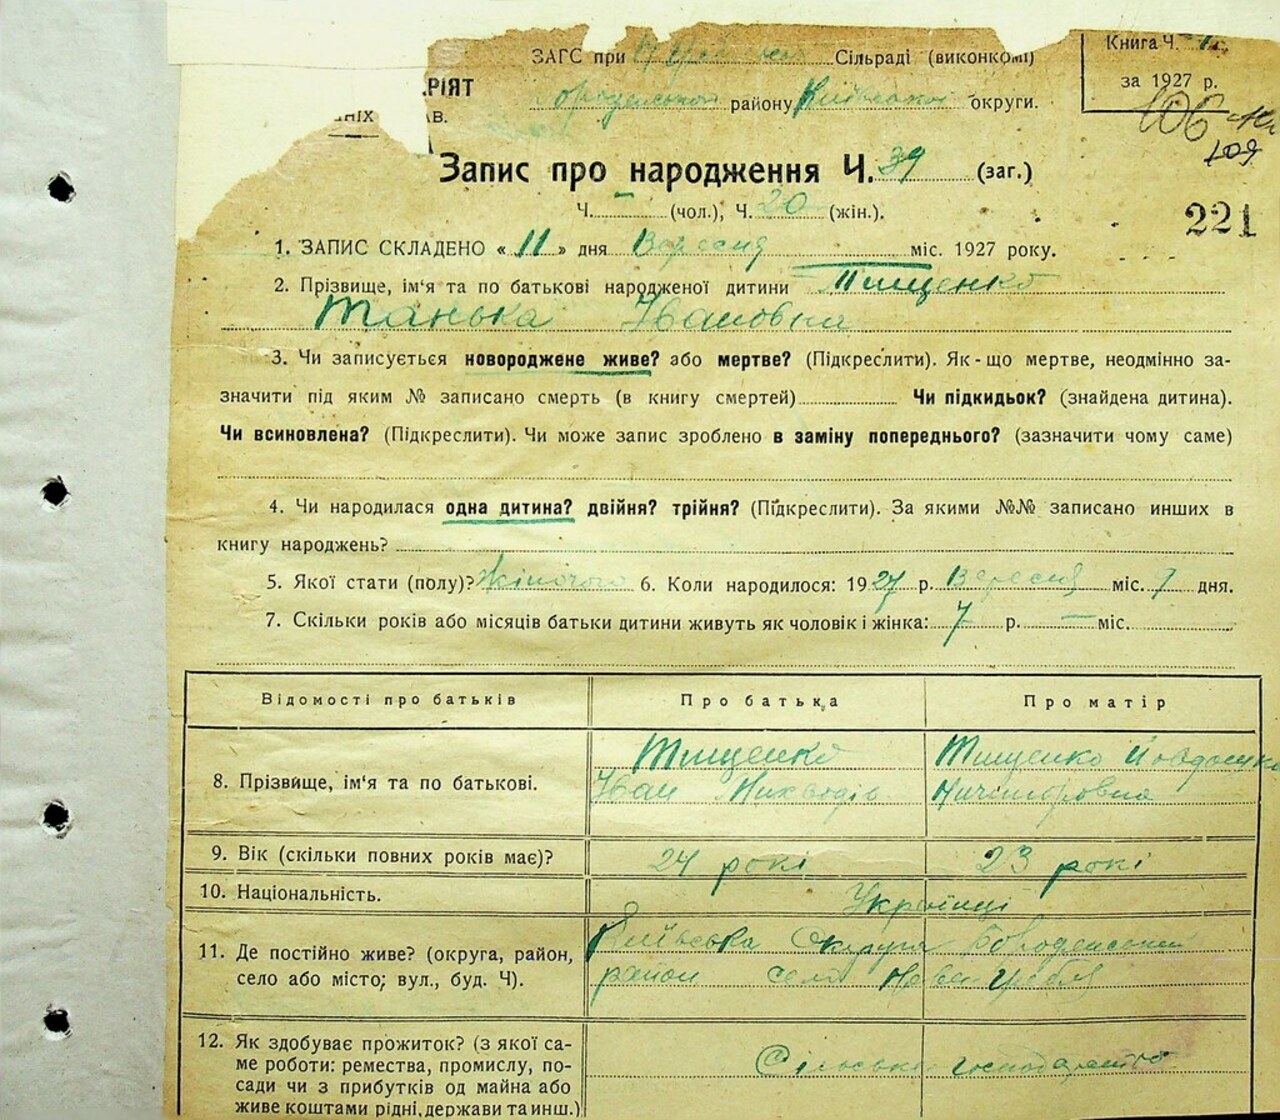 ЗАГС при Сільраді (виконкомі)
Книга Ч.
за 1927 р.
РІЯТ
Бороденської району Київської округи.
НИХ
АВ.
106
109
Запис про народження Ч. 39 (заг.)
Ч. – (чол.), Ч. 20 (жін.).
221
1. ЗАПИС СКЛАДЕНО « 11 » дня Вересня міс. 1927 року.
2. Прізвище, ім'я та по батькові народженої дитини Тищенко
Танька Івановна
3. Чи записується новороджене живе? або мертве? (Підкреслити). Як-що мертве, неодмінно за-
значити під яким № записано смерть (в книгу смертей) Чи підкидьок? (знайдена дитина).
Чи всиновлена? (Підкреслити). Чи може запис зроблено в заміну попереднього? (зазначити чому саме)
4. Чи народилася одна дитина? двійня? трійня? (Підкреслити). За якими №№ записано инших в
книгу народжень?
5. Якої стати (полу)? Жіночого 6. Коли народилося: 1927 р. Вересня міс. 9 дня.
7. Скільки років або місяців батьки дитини живуть як чоловік і жінка: 7 р. – міс.
Відомості про батьків Про батька Про матір
8. Прізвище, ім'я та по батькові. Тищенко Тищенко
Іван Ничипоровна
9. Вік (скільки повних років має)? 24 рокі 23 рокі
10. Національність. Українці
11. Де постійно живе? (округа, район, Київська Округа Бороденський
село або місто; вул., буд. Ч). район село Нова Гребля
12. Як здобуває прожиток? (з якої са-
ме роботи: ремества, промислу, по- Сільське господарство
сади чи з прибутків од майна або
живе коштами рідні, держави та инш.)